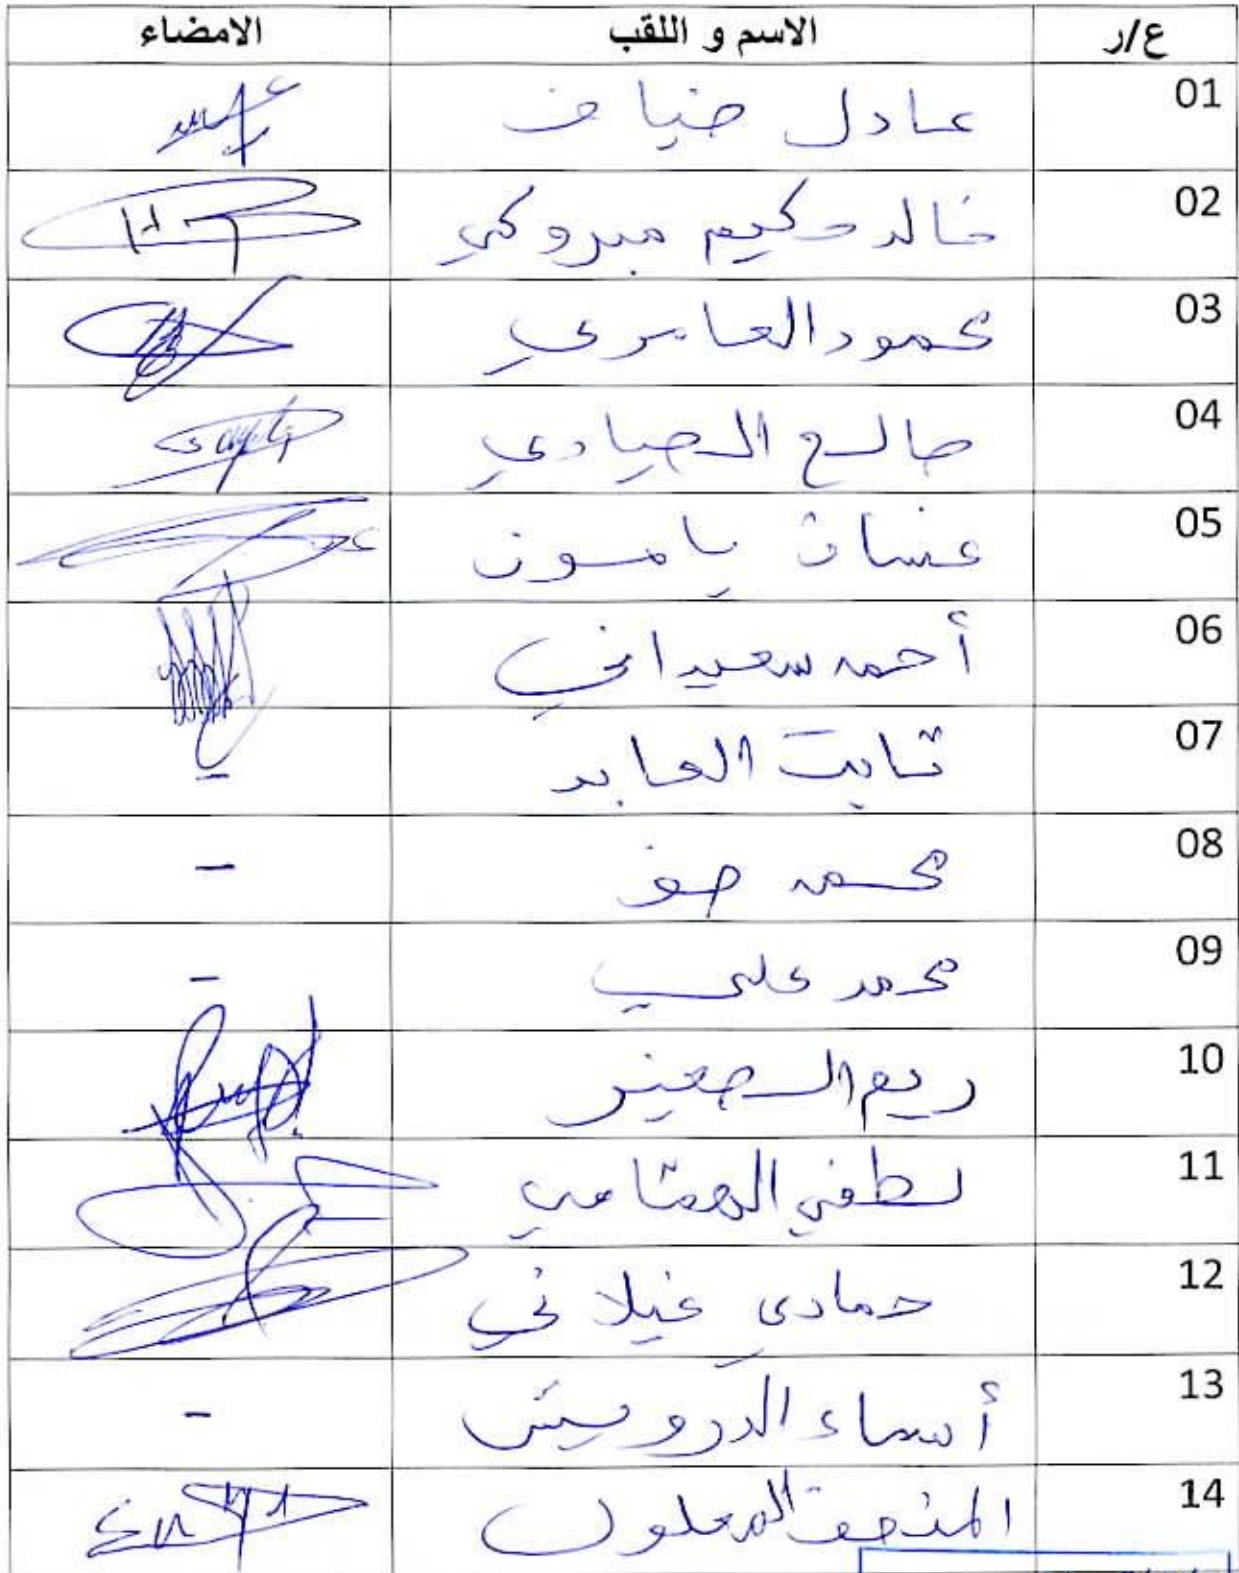 ع/ر الاسم و اللقب الامضاء
01 عادل ضياف
02 خالد حكيم مبروكي
03 محمود العامري
04 صالح الصيادي
05 غسان يامون
06 أحمد سعيداني
07 ثابت العابد -
08 محمد ضو -
09 محمد علي -
10 ريم الصغير
11 لطفي الهمامي
12 حمادي غيلاني
13 أسماء الدرويش -
14 المنصف المعلول